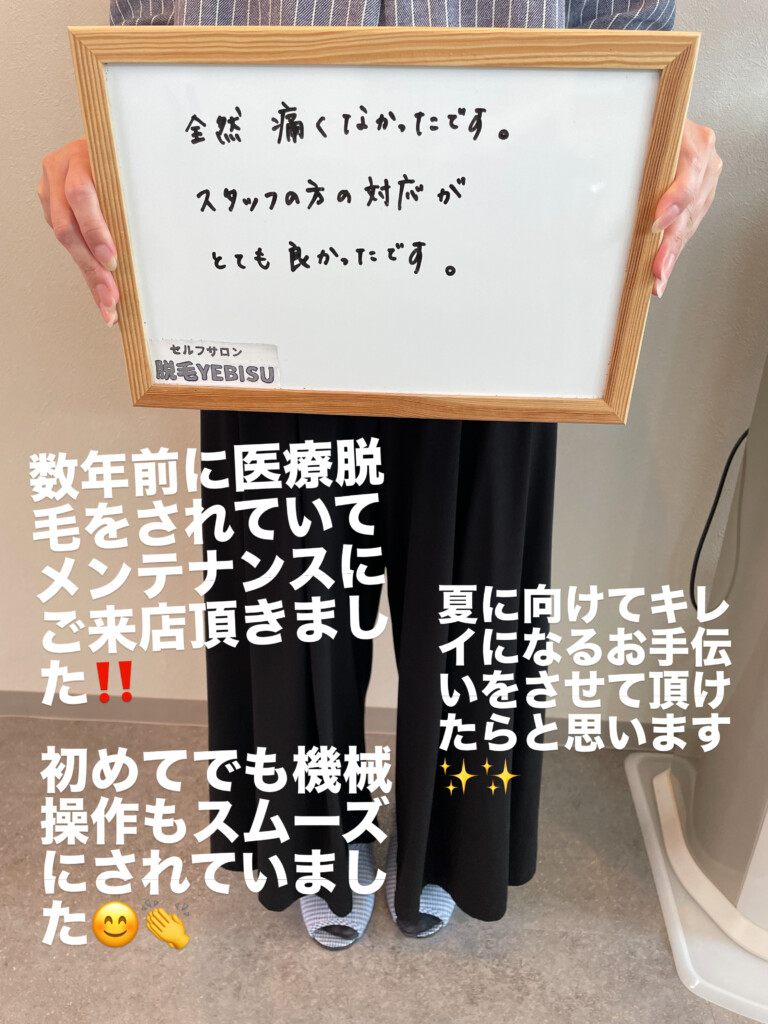 全然 痛くなかったです。
スタッフの方の対応が
とても良かったです。
セルフサロン
脱毛YEBISU
数年前に医療脱
毛をされていて
メンテナンスに
ご来店頂きまし
た‼️
初めてでも機械
操作もスムーズ
にされていまし
た😊👏
夏に向けてキレ
イになるお手伝
いをさせて頂け
たらと思います
✨✨